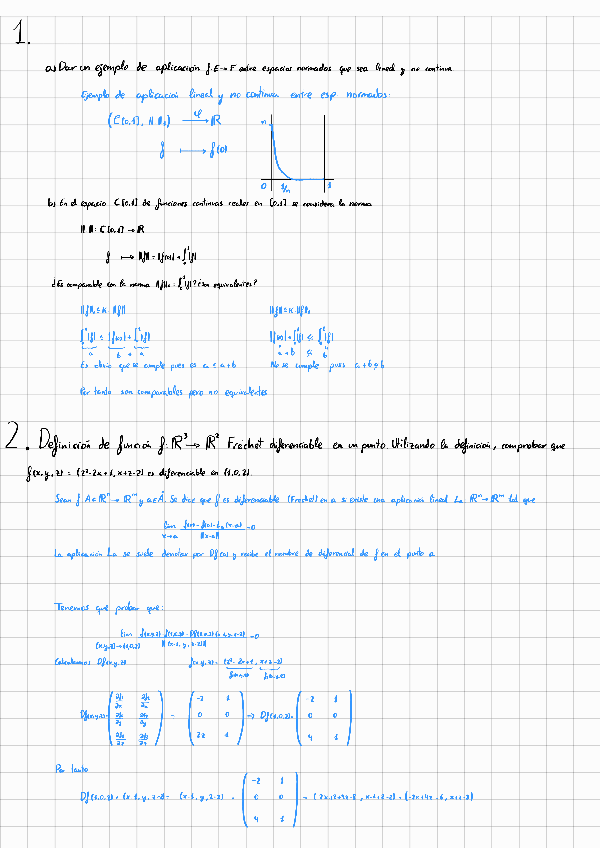 1.
a) Dar un ejemplo de aplicación f: E → F entre espacios normados que sea lineal y no continua
Ejemplo de aplicación lineal y no continua entre esp normados:
(C[0,1], || ||₁) —φ→ R
f ⟼ f(0)
n
0 1/n 1
b) En el espacio C[0,1] de funciones continuas reales en [0,1] se considera la norma
|| ||: C[0,1] → R
f ⟼ ||f|| = |f(0)| + ∫₀¹|f|
¿Es comparable con la norma ||f||₁ = ∫₀¹|f|? ¿Son equivalentes?
||f||₁ ≤ K·||f|| ||f|| ≤ K·||f||₁
∫₀¹|f| ≤ |f(0)| + ∫₀¹|f| |f(0)| + ∫₀¹|f| ≤ ∫₀¹|f|
a b + a a + b ≤ b
Es obvio que se cumple pues es a ≤ a+b No se cumple pues a+b ≰ b
Por tanto son comparables pero no equivalentes
2. Definición de función f: R³ → R² Frechet diferenciable en un punto. Utilizando la definición, comprobar que
f(x,y,z) = (z²-2x+1, x+z-2) es diferenciable en (1,0,2).
Sean f: A⊂Rⁿ → Rᵐ y a∈Å. Se dice que f es diferenciable (Frechet) en a si existe una aplicación lineal La: Rⁿ → Rᵐ tal que
lim x→a f(x)-f(a)-La(x-a) / ||x-a|| = 0
La aplicación La se suele denotar por Df(a) y recibe el nombre de diferencial de f en el punto a.
Tenemos que probar que:
lim f(x,y,z)-f(1,0,2)-Df(1,0,2)(x-1,y,z-2) = 0
(x,y,z)→(1,0,2) ||(x-1, y, z-2)||
Calculamos Df(x,y,z) f(x,y,z) = (z²-2x+1, x+z-2)
f₁(x,y,z) f₂(x,y,z)
∂f₁/∂x ∂f₂/∂x -2 1 -2 1
Df(x,y,z) = ∂f₁/∂y ∂f₂/∂y = 0 0 → Df(1,0,2) = 0 0
∂f₁/∂z ∂f₂/∂z 2z 1 4 1
Por tanto
-2 1
Df(1,0,2) · (x-1, y, z-2) = (x-1, y, z-2) · 0 0 = (-2x+2+4z-8, x-1+z-2) = (-2x+4z-6, x+z-3)
4 1